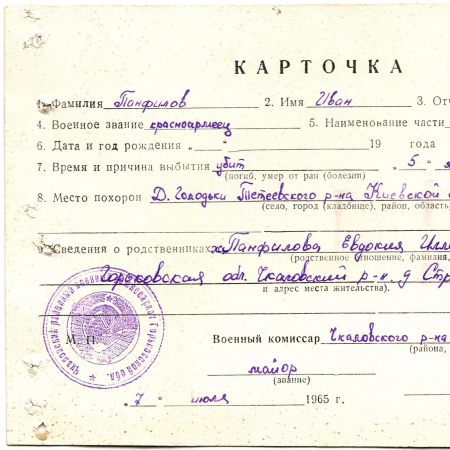 КАРТОЧКА
1. Фамилия Панфилов 2. Имя Иван 3. Отч
4. Военное звание красноармеец 5. Наименование части
6. Дата и год рождения „ “ 19 года
7. Время и причина выбытия убит „5“ я
(погиб, умер от ран (болезни)
8. Место похорон Д. Голодьки Тетеевского р-на Киевской о
(село, город (кладбище), район, область
9. Сведения о родственниках Панфилова Евдокия
(родственное отношение, фамилия,
Горьковская обл. Чкаловский р-н. д Стр
и адрес места жительства).
М. П.
Военный комиссар Чкаловского р-на
(района,
майор
(звание)
„7“ июля 1965 г.